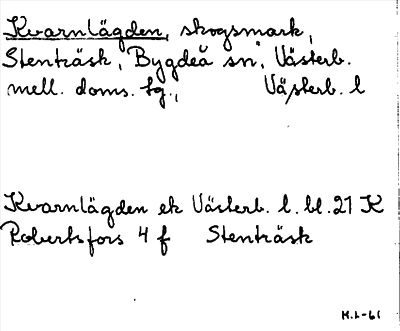 Kvarnlägden, skogsmark,
Stenträsk, Bygdeå sn, Västerb.
mell. doms. tg., Västerb. l
Kvarnlägden ek Västerb. l. bl. 21 K
Robertsfors 4 f Stenträsk
H.L-61